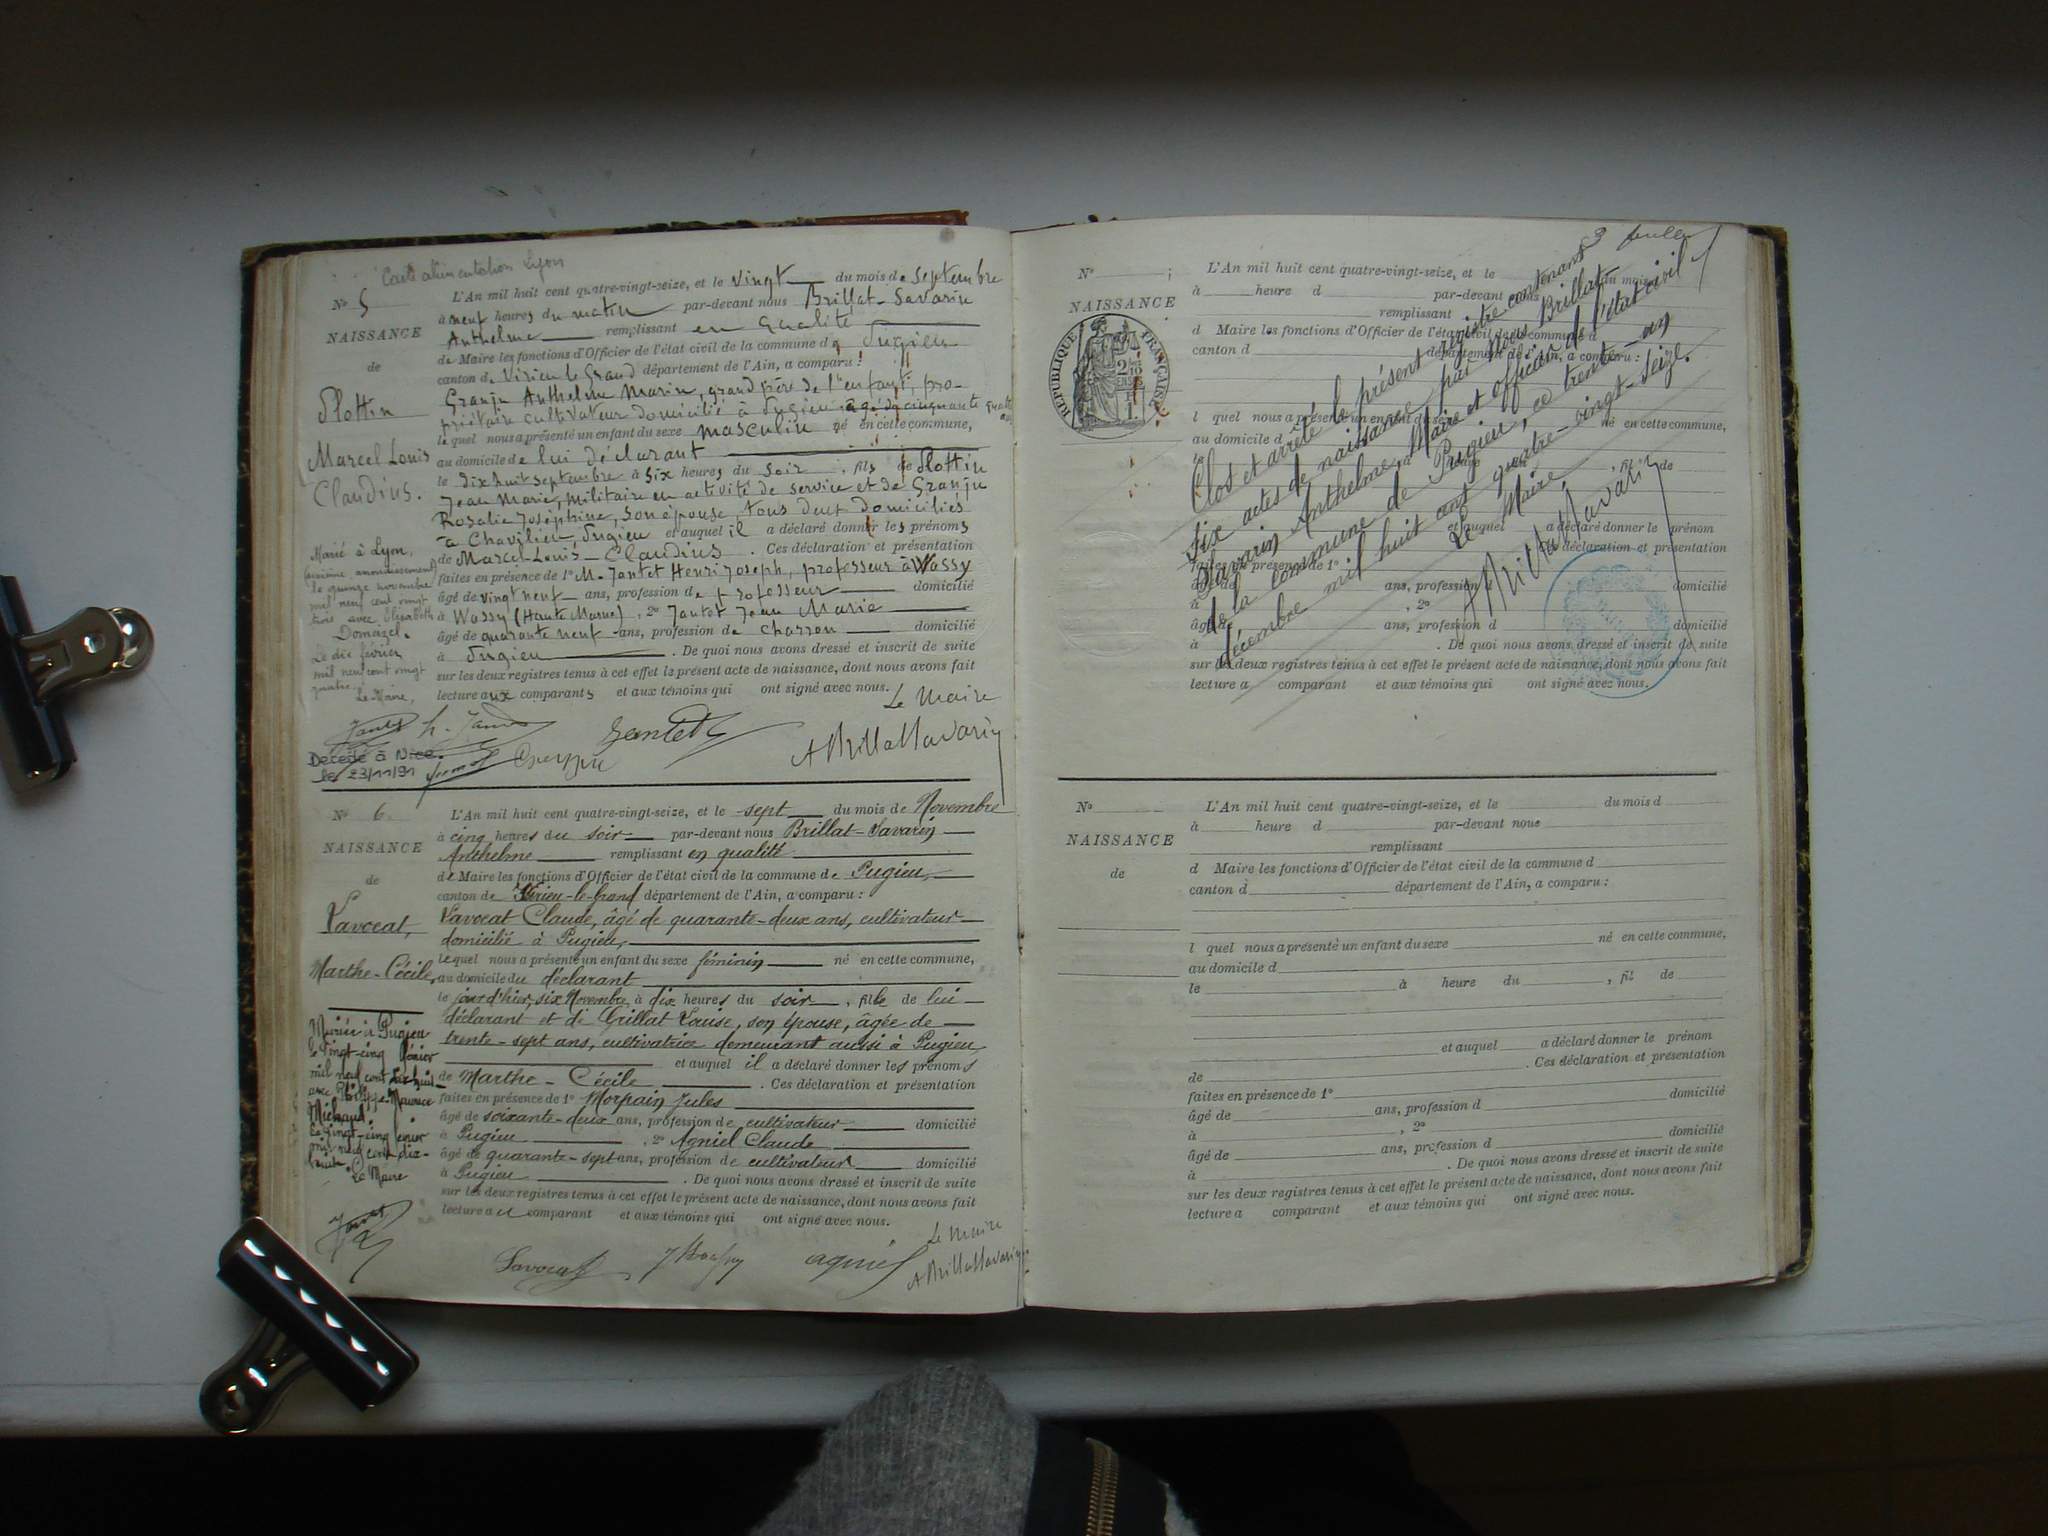 Carte alimentation Lyon
N° 5
NAISSANCE
de
Plottin
Marcel Louis
Claudius.
L'An mil huit cent quatre-vingt-seize, et le vingt du mois de septembre
à neuf heures du matin par-devant nous Brillat-Savarin
Anthelme remplissant en qualité
de Maire les fonctions d'Officier de l'état civil de la commune de Pugieu
canton de Virieu le Grand département de l'Ain, a comparu :
Granju Anthelme Marin, grand père de l'enfant, pro-
priétaire cultivateur domicilié à Pugieu âgé de cinquante quatre ans
le quel nous a présenté un enfant du sexe masculin né en cette commune,
au domicile de lui déclarant
le dix huit septembre à six heures du soir, fils de Plottin
Jean Marie, militaire en activité de service et de Granju
Rosalie Joséphine, son épouse, tous deux domiciliés
à Chavilieu, Pugieu et auquel il a déclaré donner les prénoms
de Marcel-Louis-Claudius. Ces déclaration et présentation
faites en présence de 1° M. Jantet Henri Joseph, professeur à Wassy
âgé de vingt neuf ans, profession de professeur domicilié
à Wassy (Haute Marne), 2° Jantet Jean Marie
âgé de quarante neuf ans, profession de charron domicilié
à Pugieu. De quoi nous avons dressé et inscrit de suite
sur les deux registres tenus à cet effet le présent acte de naissance, dont nous avons fait
lecture aux comparants et aux témoins qui ont signé avec nous.
Le Maire
Marié à Lyon,
arrondissement)
le quinze novembre
mil neuf cent vingt
trois avec Elisabeth
Domazel.
Le dix février
mil neuf cent vingt
quatre.
Le Maire,
Jantet
A Brillat Savarin
Décédé à Nice
le 23/11/91
N° 6
NAISSANCE
de
Lavocat,
Marthe-Cécile,
L'An mil huit cent quatre-vingt-seize, et le sept du mois de Novembre
à cinq heures du soir par-devant nous Brillat-Savarin
Anthelme remplissant en qualité
de Maire les fonctions d'Officier de l'état civil de la commune de Pugieu,
canton de Virieu-le-Grand département de l'Ain, a comparu :
Lavocat Claude, âgé de quarante-deux ans, cultivateur
domicilié à Pugieu,
le quel nous a présenté un enfant du sexe féminin né en cette commune,
au domicile du déclarant
le jour d'hier, six Novembre à dix heures du soir, fille de lui
déclarant et de Grillat Louise, son épouse, âgée de
trente-sept ans, cultivatrice demeurant aussi à Pugieu,
et auquel il a déclaré donner les prénoms
de Marthe-Cécile. Ces déclaration et présentation
faites en présence de 1° Morpain Jules
âgé de soixante-deux ans, profession de cultivateur domicilié
à Pugieu, 2° Agniel Claude
âgé de quarante-sept ans, profession de cultivateur domicilié
à Pugieu. De quoi nous avons dressé et inscrit de suite
sur les deux registres tenus à cet effet le présent acte de naissance, dont nous avons fait
lecture au comparant et aux témoins qui ont signé avec nous.
Mariée à Pugieu
le vingt-cinq février
mil neuf cent dix-huit
avec Philippe-Maurice
Michaud.
Le vingt-cinq février
mil neuf cent dix-
huit.
Le Maire
Jantet
Le Maire
Lavocat
agniel
A Brillat Savarin
N°
NAISSANCE
RÉPUBLIQUE FRANÇAISE
L'An mil huit cent quatre-vingt-seize, et le du mois
à heure d par-devant nous
remplissant
d Maire les fonctions d'Officier de l'état civil de la commune d
canton d département de l'Ain, a comparu :
l quel nous a présenté un enfant du sexe né en cette commune,
au domicile d
le à heure , fil de
et auquel a déclaré donner le prénom
Ces déclaration et présentation
faites en présence de 1°
âgé de ans, profession d domicilié
à , 2°
âgé de ans, profession d domicilié
à . De quoi nous avons dressé et inscrit de suite
sur les deux registres tenus à cet effet le présent acte de naissance, dont nous avons fait
lecture a comparant et aux témoins qui ont signé avec nous.
Clos et arrêté le présent registre contenant
six actes de naissance par nous Brillat
Savarin Anthelme, Maire et officier de l'état civil
de la commune de Pugieu, ce trente-un
décembre mil huit cent quatre-vingt-seize.
Le Maire,
A Brillat Savarin
N°
NAISSANCE
de
L'An mil huit cent quatre-vingt-seize, et le du mois d
à heure d par-devant nous
remplissant
d Maire les fonctions d'Officier de l'état civil de la commune d
canton d département de l'Ain, a comparu :
l quel nous a présenté un enfant du sexe né en cette commune,
au domicile d
le à heure du , fil de
et auquel a déclaré donner le prénom
de . Ces déclaration et présentation
faites en présence de 1°
âgé de ans, profession d domicilié
à , 2°
âgé de ans, profession d domicilié
à . De quoi nous avons dressé et inscrit de suite
sur les deux registres tenus à cet effet le présent acte de naissance, dont nous avons fait
lecture a comparant et aux témoins qui ont signé avec nous.